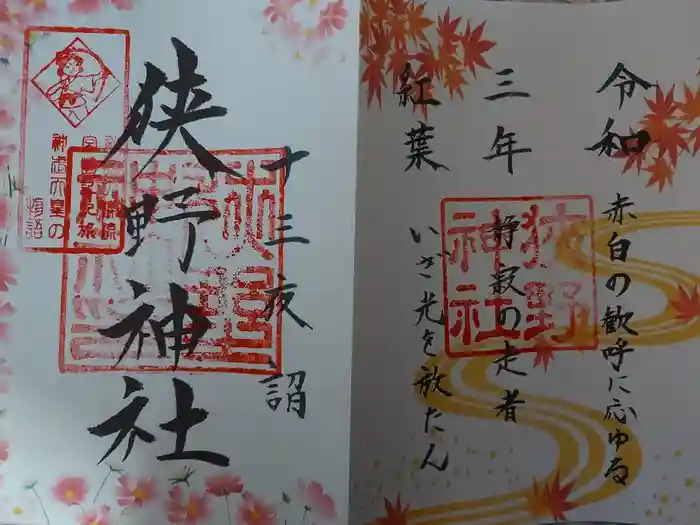 令和
三年
紅葉
赤白の歓呼に応ゆる
静寂の走者
いざ光を放たん
狭野
神社
十三夜詣
狭野神社
神武天皇の
物語